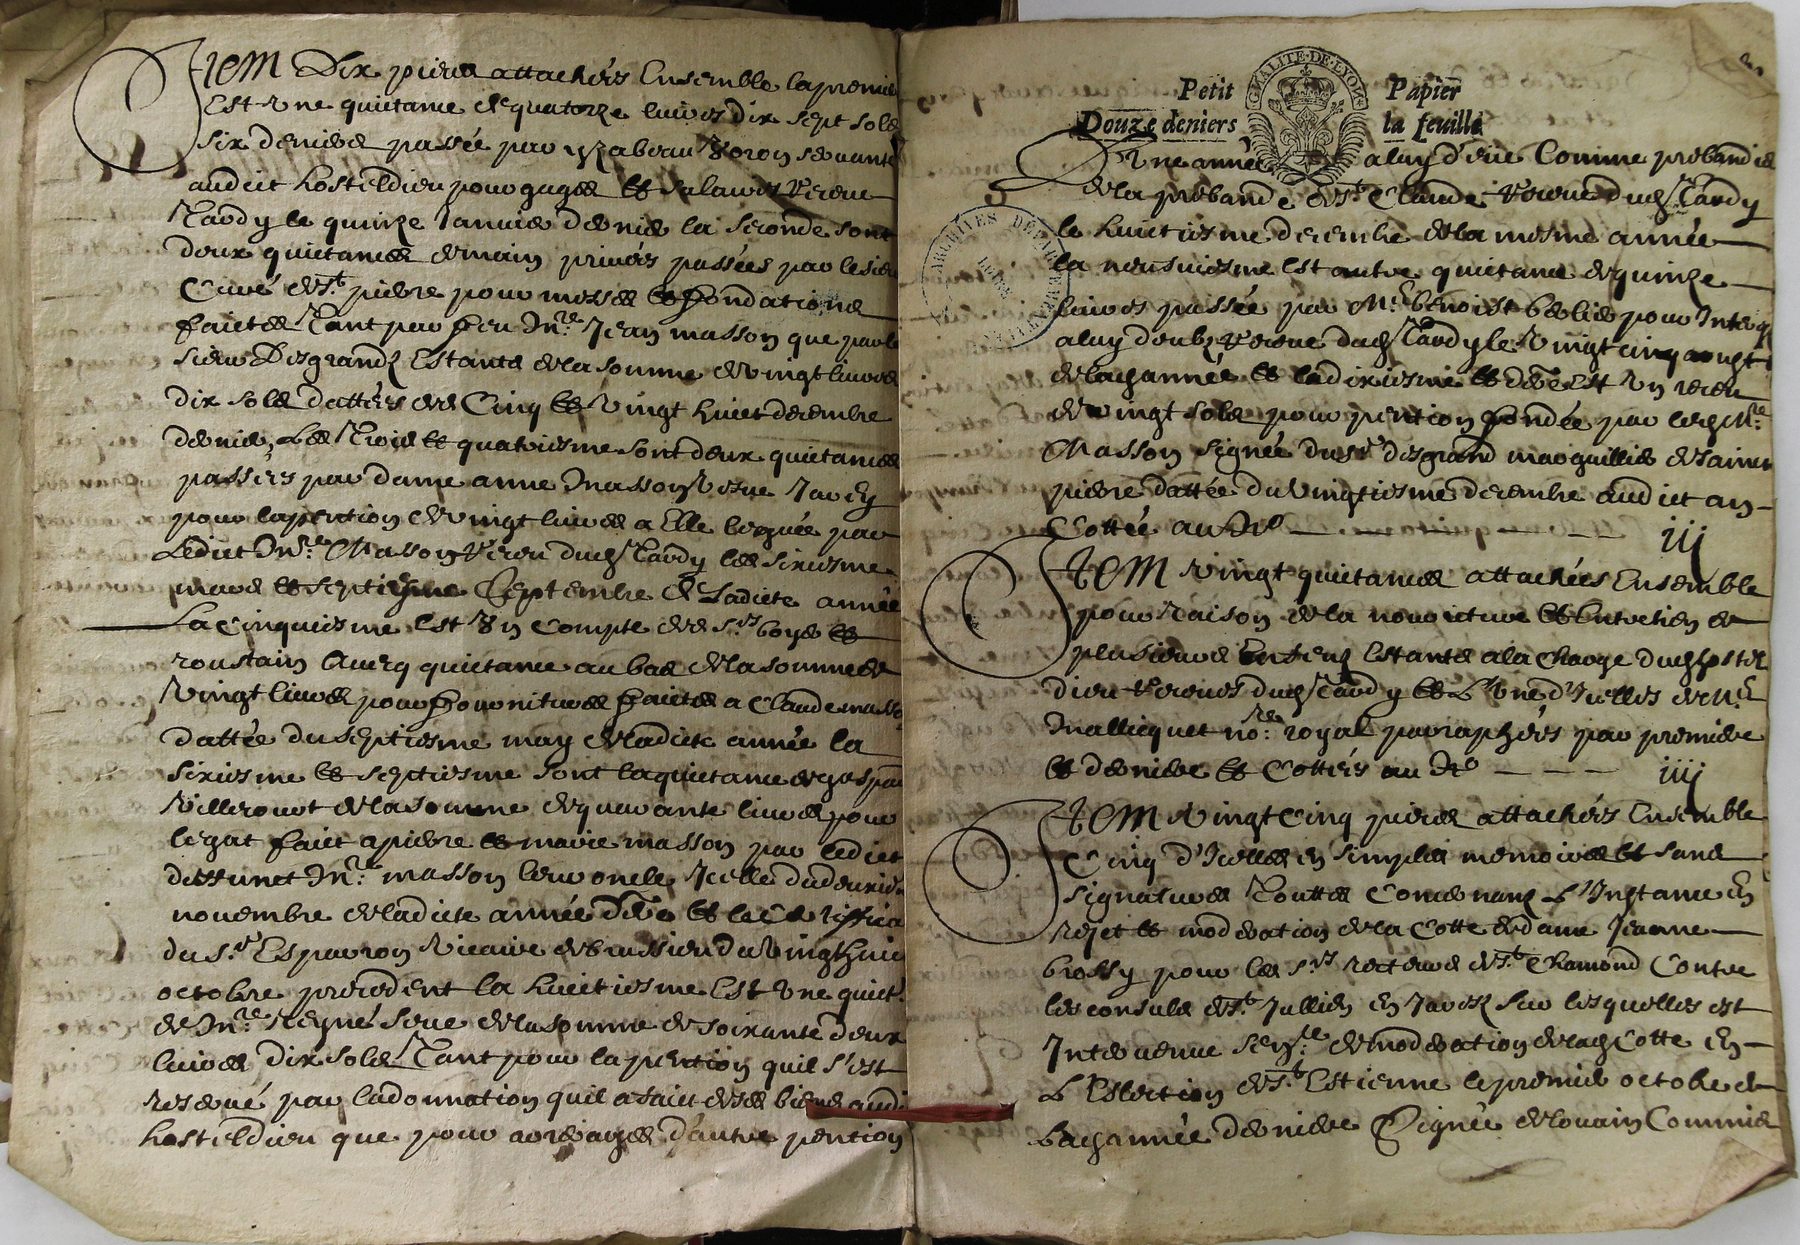 Item Dix pieces attachées Ensemble la premie
Est Une quictance de quatorze livres dix sept solz
six deniers passée par yzabeau servante
audict hosteldieu pour gages et salaires Receue
Tardy le quinze Janvier dernier la seconde sont
deux quictances de main privées passées par le sieur
Curé de St pierre pour messes et fondations
faictes Tant par feu Mre Jean masson que par le
sieur Desgrandz Estants de la somme de vingt livres
dix solz dattées des Cinq et vingt huict decembre
dernier, Les Trois et quatriesme sont deux quictances
passées par dame anne masson
pour la pention de vingt livres a Elle leguée par
Ledict Mre Masson Receu dudt Tardy les sixiesme
mars et septiesme Septembre de Ladicte année
La cinquiesme Est Un Compte des srs boyer et
roustain Avecq quictance au bas de la somme de
Vingt livres pour fournitures faictes a Claude masso
dattée du septiesme may de ladicte année la
sixiesme et septiesme sont la quictance de gaspar
de la somme de quarante livres pour
legat faict a pierre et marie masson par ledict
deffunct Mre masson leur oncle Icelle du dernier
novembre de ladicte année et le Certiffica
du sr Esparron vicaire de bussieu du vingt huic
octobre precedent la huictiesme Est Une quict.
de Mre de la somme de soixante deux
livres dix solz Tant pour la pention quil s'est
reservé par la donnation quil a faict de ses biens audi
hosteldieu que pour arrerages d'autre pention
GENALITE·DE·LYON
Petit Papier
Douze deniers la feuille
d'Une année a luy d'eue Comme prebandier
de la prebande de St Claude Receue dudt Tardy
le huictiesme decembre de la mesme année
la neufviesme Est autre quictance de quinze
livres passée par Mre benoist pour Interestz
a luy doubz Receue dudt Tardy le Vingt cinq aougst
de lad année et la dixiesme et dere Est Un receu
de vingt solz pour pention fondée par led Mre
Masson signée du sr desgrand marguillier de sainct
pierre dattée du vingtiesme decembre audict an
Cottée au No iij
ARCHIVES DÉPARTEMENTALES
LOIRE
Item Vingt quictances attachées Ensemble
pour raison de la nourriture et Entretien de
plusieurs Enfens Estants a la Charge dudt hostel
dieu Receues dudt Tardy et L'Une d'Icelles de Me
Malliquet nore royal paraphées par premiere
et derniere et Cottées au No iiij
Item Vingt Cinq pieces attachées Ensemble
Cinq d'Icelles en simples memoires et sans
signatures Touttes Concernanz L'Instance En
rejet et moderation de la Cotte de dame Jeanne
brossy pour les srs recteurs de St Chamond Contre
les consulz de St Jullien en Jarez sur lesquelles est
Intervenue sence de moderation de lad Cotte En
L'Eslection de St Estienne le premier octobre de
Lad année derniere Signée de louain Commis